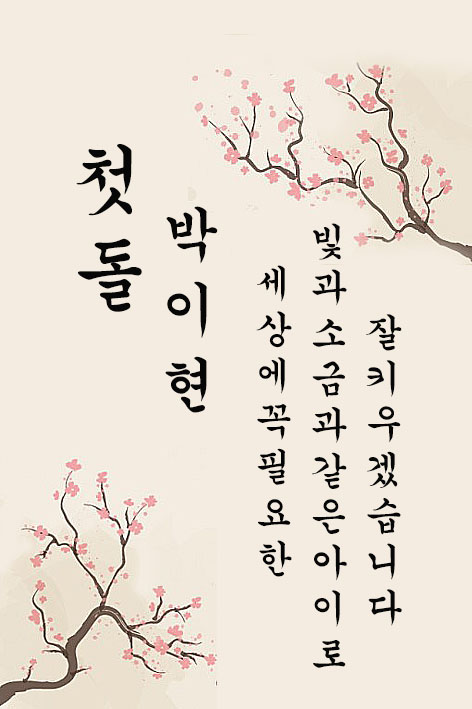 첫돌
박이현
세상에꼭필요한
빛과소금과같은아이로
잘키우겠습니다